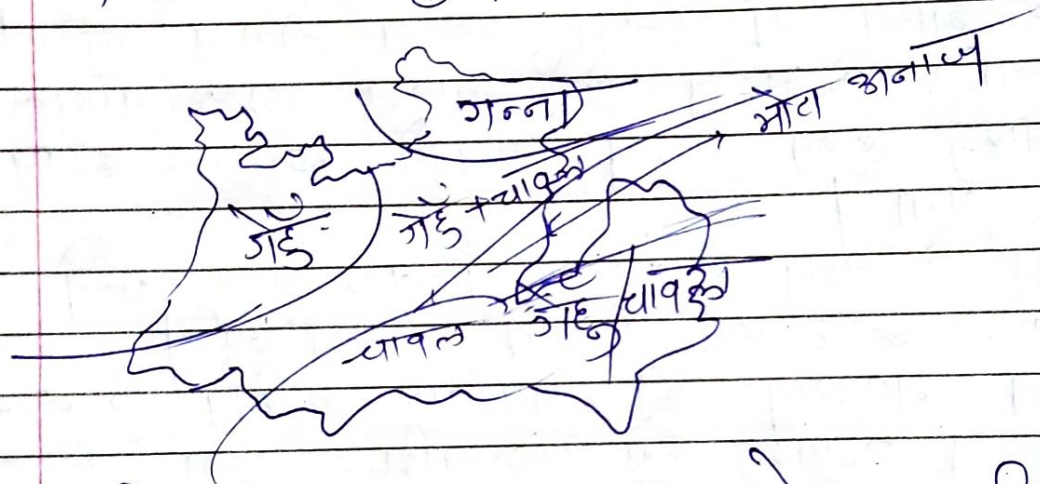 गन्ना
मोटा अनाज
गेहुँ
गेहुँ + चावल
चावल
गेहुँ
चावल